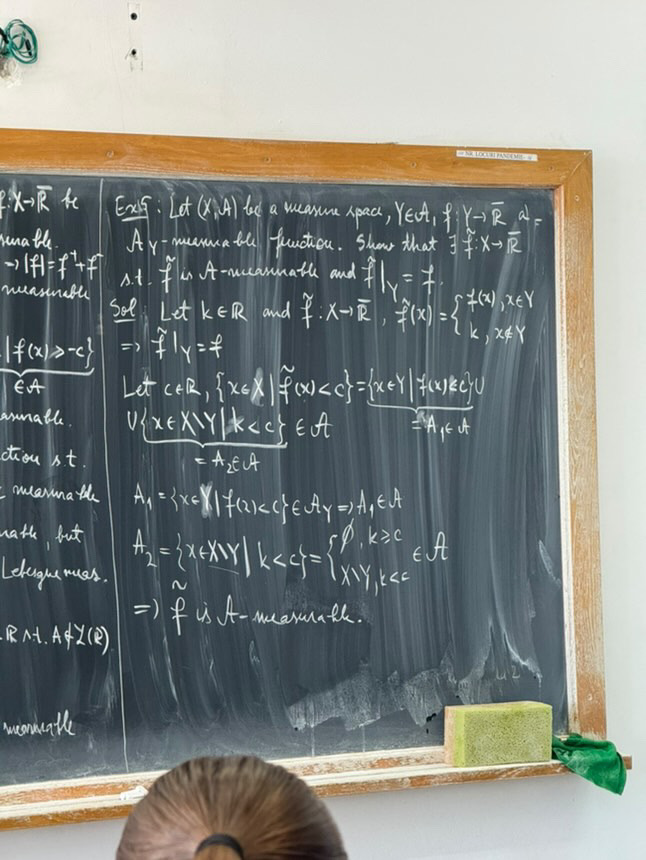 NR. LOCURI PANDEMIE
f: X→ℝ̅ be
=> |f| = f⁺ + f⁻
measurable
| f(x) ≥ -c}
∈ A
s.t.
measurable
, but
Lebesgue meas.
ℝ s.t. A ∉ ℒ(ℝ)
measurable
Ex5: Let (X, A) be a measure space, Y∈A, f: Y→ℝ̅ a
A_Y-measurable function. Show that ∃ f̃: X→ℝ̅
s.t. f̃ is A-measurable and f̃|_Y = f.
Sol Let k∈ℝ and f̃: X→ℝ̅, f̃(x) = { f(x), x∈Y
k, x∉Y
=> f̃|_Y = f
Let c∈ℝ, {x∈X | f̃(x) < c} = {x∈Y | f(x) < c} ∪
= A₁ ∈ A
∪ {x∈X\Y | k < c} ∈ A
= A₂ ∈ A
A₁ = {x∈Y | f(x) < c} ∈ A_Y => A₁ ∈ A
A₂ = {x∈X\Y | k < c} = { ∅, k ≥ c
X\Y, k < c ∈ A
=> f̃ is A-measurable.